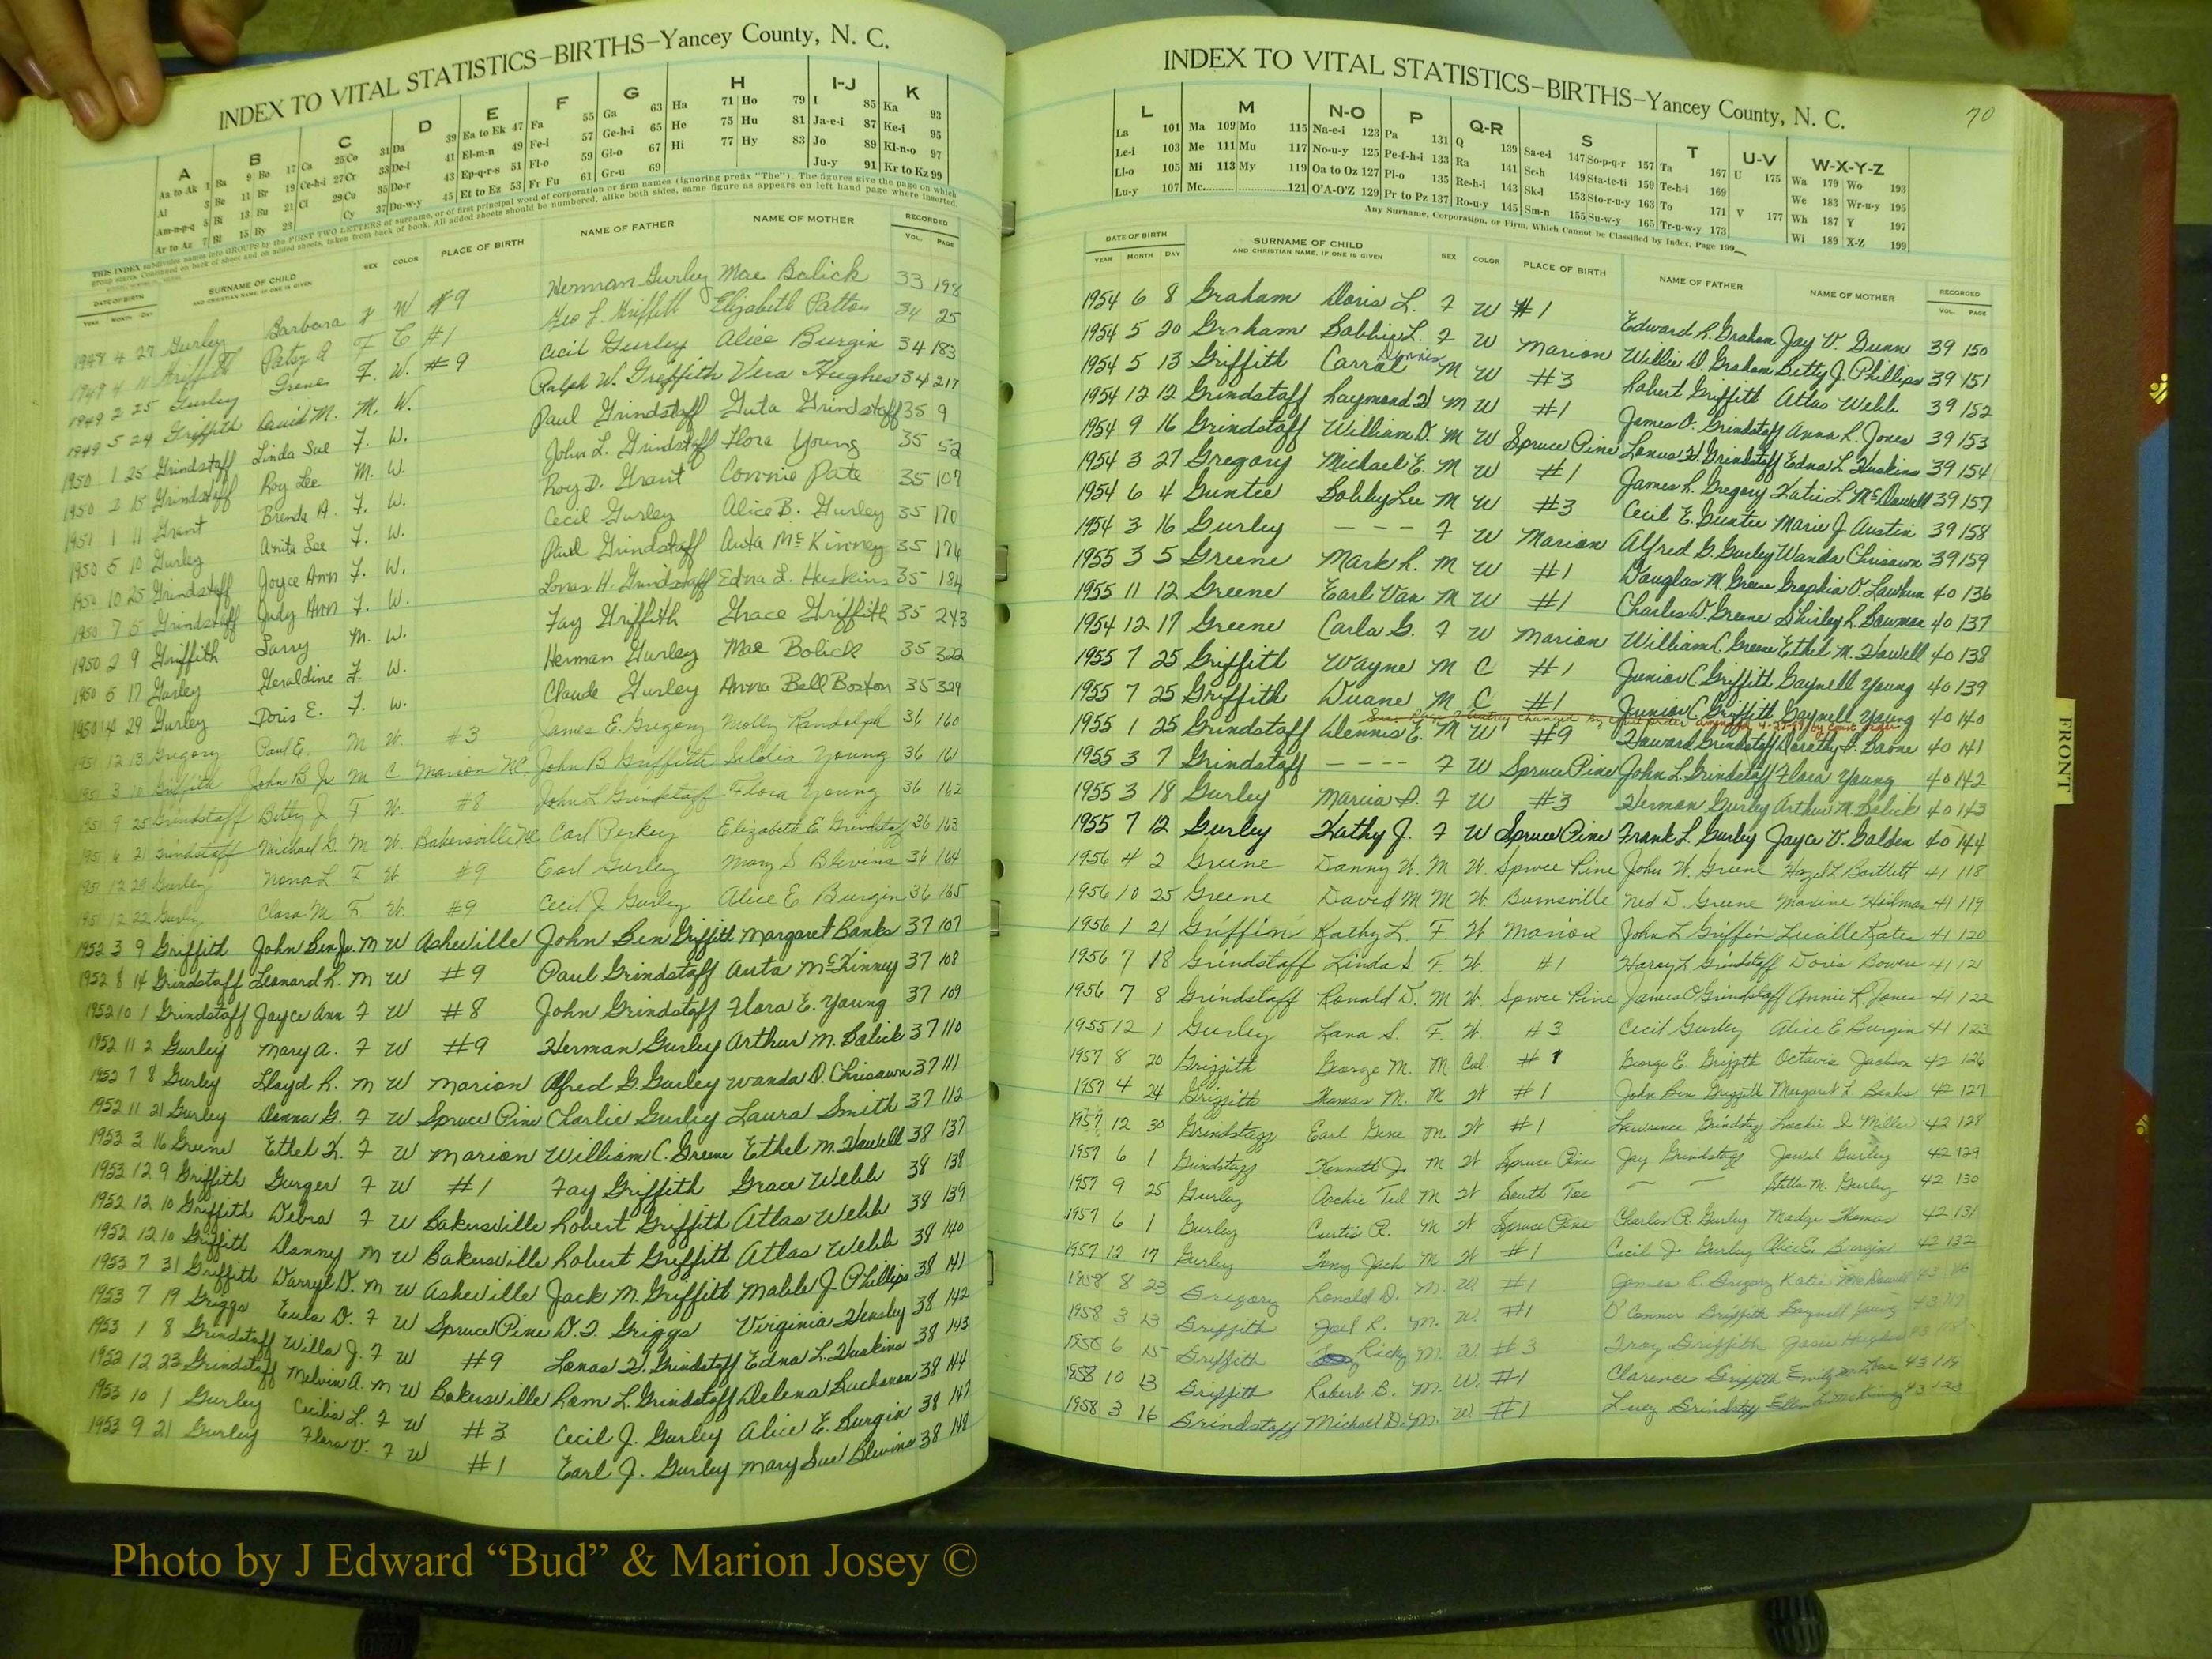 INDEX TO VITAL STATISTICS—BIRTHS—Yancey County, N. C.
A B C D E F G H I-J K
Aa to Ak 1 Ba 9 Bo 17 Ca 25 Co 31 Da 39 Ea to Ek 47 Fa 55 Ga 63 Ha 71 Ho 79 I 85 Ka 93
Al 3 Be 11 Br 19 Ce-h-i 27 Cr 33 De-i 41 El-m-n 49 Fe-i 57 Ge-h-i 65 He 75 Hu 81 Ja-e-i 87 Ke-i 95
Am-n-p-q 5 Bi 13 Bu 21 Cl 29 Cu 35 Do-r 43 Ep-q-r-s 51 Fl-o 59 Gl-o 67 Hi 77 Hy 83 Jo 89 Kl-n-o 97
Ar to Az 7 Bl 15 By 23 Cy 37 Du-w-y 45 Et to Ez 53 Fr Fu 61 Gr-u 69 Ju-y 91 Kr to Kz 99
THIS INDEX subdivides names into GROUPS by the FIRST TWO LETTERS of surname, or of first principal word of corporation or firm names (ignoring prefix "The"). The figures give the page on which
group starts. Continued on back of sheet and on added sheets, taken from back of book. All added sheets should be numbered, alike both sides, same figure as appears on left hand page where inserted.
DATE OF BIRTH SURNAME OF CHILD SEX COLOR PLACE OF BIRTH NAME OF FATHER NAME OF MOTHER RECORDED
YEAR MONTH DAY AND CHRISTIAN NAME, IF ONE IS GIVEN VOL. PAGE
1948 4 27 Gurley Barbara F W #9 Herman Gurley Mae Bolick 33 198
1949 4 11 Griffith Patsy A F C #1 Geo L. Griffith Elizabeth Patton 34 25
1949 2 25 Gurley Irene F. W. #9 Cecil Gurley Alice Burgin 34 183
1949 5 24 Griffith David M. M. W. Ralph W. Griffith Vera Hughes 34 217
1950 1 25 Grindstaff Linda Sue F. W. Paul Grindstaff Grindstaff 35 9
1950 2 15 Grindstaff Roy Lee M. W. John L. Grindstaff Flora Young 35 52
1951 1 11 Grant Brenda A. F. W. Roy D. Grant Connie Pate 35 107
1950 5 10 Gurley Anita Lee F. W. Cecil Gurley Alice B. Gurley 35 170
1950 10 25 Grindstaff Joyce Ann F. W. Paul Grindstaff Auta McKinney 35 174
1950 7 5 Grindstaff Judy Ann F. W. Lonas H. Grindstaff Edna L. Huskins 35 184
1950 2 9 Griffith Larry M. W. Fay Griffith Grace Griffith 35 243
1950 5 17 Gurley Geraldine F. W. Herman Gurley Mae Bolick 35 322
1950 4 29 Gurley Doris E. F. W. Claude Gurley Anna Bell Boston 35 329
1951 12 13 Gregory Paul E. M W. #3 James E. Gregory Molly Randolph 36 160
1951 3 10 Griffith John B. Jr. M C Marion NC John B Griffith Young 36 161
1951 9 25 Grindstaff Betty J. F W. #8 John L. Grindstaff Flora Young 36 162
1951 6 21 Grindstaff Michael D. M W. Bakersville NC Carl Perkey Elizabeth E. Grindstaff 36 163
1951 12 29 Gurley Nona L. F W #9 Earl Gurley Mary S Blevins 36 164
1951 12 22 Gurley Clara M F. W. #9 Cecil J. Gurley Alice E Burgin 36 165
1952 3 9 Griffith John Ben Jr. M W Asheville John Ben Griffith Margaret Banks 37 107
1952 8 14 Grindstaff Leonard R. M W #9 Paul Grindstaff Auta McKinney 37 108
1952 10 1 Grindstaff Joyce Ann F W #8 John Grindstaff Flora E. Young 37 109
1952 11 2 Gurley Mary A. F W #9 Herman Gurley Arthur M. Bolick 37 110
1952 7 8 Gurley Lloyd R. M W Marion Alfred G. Gurley Wanda D. Chrisawn 37 111
1952 11 21 Gurley Donna G. F W Spruce Pine Charlie Gurley Laura Smith 37 112
1953 3 16 Greene Ethel K. F W Marion William C. Greene Ethel M. Howell 38 137
1953 12 9 Griffith F W #1 Fay Griffith Grace Webb 38 138
1952 12 10 Griffith Debra F W Bakersville Robert Griffith Atlas Webb 38 139
1952 12 10 Griffith Danny M W Bakersville Robert Griffith Atlas Webb 38 140
1953 7 31 Griffith Darryl D. M W Asheville Jack M. Griffith Mable J. Phillips 38 141
1953 7 19 Griggs Eula D. F W Spruce Pine D. T. Griggs Virginia Hensley 38 142
1953 1 8 Grindstaff Willa J. F W #9 Lonas H. Grindstaff Edna L. Huskins 38 143
1952 12 23 Grindstaff Melvin A. M W Bakersville Rom L. Grindstaff Delena Buchanan 38 144
1953 10 1 Gurley Cecilia L. F W #3 Cecil J. Gurley Alice E. Burgin 38 147
1953 9 21 Gurley Flora V. F W #1 Earl J. Gurley Mary Sue Blevins 38 148
INDEX TO VITAL STATISTICS—BIRTHS—Yancey County, N. C. 70
L M N-O P Q-R S T U-V W-X-Y-Z
La 101 Ma 109 Mo 115 Na-e-i 123 Pa 131 Q 139 Sa-e-i 147 So-p-q-r 157 Ta 167 U 175 Wa 179 Wo 193
Le-i 103 Me 111 Mu 117 No-u-y 125 Pe-f-h-i 133 Ra 141 Sc-h 149 Sta-te-ti 159 Te-h-i 169 We 183 Wr-u-y 195
Ll-o 105 Mi 113 My 119 Oa to Oz 127 Pl-o 135 Re-h-i 143 Sk-l 153 Sto-r-u-y 163 To 171 V 177 Wh 187 Y 197
Lu-y 107 Mc 121 O'A-O'Z 129 Pr to Pz 137 Ro-u-y 145 Sm-n 155 Su-w-y 165 Tr-u-w-y 173 Wi 189 X-Z 199
Any Surname, Corporation, or Firm, Which Cannot be Classified by Index, Page 199
DATE OF BIRTH SURNAME OF CHILD SEX COLOR PLACE OF BIRTH NAME OF FATHER NAME OF MOTHER RECORDED
YEAR MONTH DAY AND CHRISTIAN NAME, IF ONE IS GIVEN VOL. PAGE
1954 6 8 Graham Doris L. F W #1 Edward R. Graham Jay V. Gunn 39 150
1954 5 20 Graham Bobbie L. F W Marion Willie D. Graham Betty J. Phillips 39 151
1954 5 13 Griffith Carrol Dennis M W #3 Robert Griffith Atlas Webb 39 152
1954 12 12 Grindstaff Raymond H. M W #1 James O. Grindstaff Anna R. Jones 39 153
1954 9 16 Grindstaff William D. M W Spruce Pine Lonas H. Grindstaff Edna L. Huskins 39 154
1954 3 27 Gregory Michael E. M W #1 James R. Gregory Katie L. McDowell 39 157
1954 6 4 Guntee Bobby Lee M W #3 Cecil E. Guntee Marie J. Austin 39 158
1954 3 16 Gurley - - - F W Marion Alfred G. Gurley Wanda Chrisawn 39 159
1955 3 5 Greene Mark R. M W #1 Douglas M. Greene 40 136
1955 11 12 Greene Earl Van M W #1 Charles W. Greene Shirley R. 40 137
1954 12 17 Greene Carla G. F W Marion William C. Greene Ethel M. Howell 40 138
1955 7 25 Griffith Wayne M C #1 Junior C. Griffith Gaynell Young 40 139
1955 7 25 Griffith Duane M C #1 Junior C. Griffith Gaynell Young 40 140
1955 1 25 Grindstaff Dennis E. M W #9 Howard Grindstaff Dorothy D. Boone 40 141
1955 3 7 Grindstaff - - - - F W Spruce Pine John L. Grindstaff Flora Young 40 142
1955 3 18 Gurley Marcia D. F W #3 Herman Gurley Arthur M. Bolick 40 143
1955 7 12 Gurley Kathy J. F W Spruce Pine Frank L. Gurley Jayce V. Golden 40 144
1956 4 2 Greene Danny W. M W. Spruce Pine John W. Greene Hazel L Bartlett 41 118
1956 10 25 Greene David M M W. Burnsville Ned D. Greene Maxine Hileman 41 119
1956 1 21 Griffin Kathy L. F. W. Marion John L Griffin Lucille Kates 41 120
1956 7 18 Grindstaff Linda S F. W. #1 Harry L Grindstaff Doris Bowen 41 121
1956 7 8 Grindstaff Ronald D. M. W. Spruce Pine James O Grindstaff Annie R. Jones 41 122
1955 12 1 Gurley Lana S. F. W. #3 Cecil Gurley Alice E. Burgin 41 123
1957 8 20 Griffith George M. M Col. #1 George E. Griffith Octavia Jackson 42 126
1957 4 24 Griffith Thomas M. M W #1 John Ben Griffith Margaret L Banks 42 127
1957 12 30 Grindstaff Earl Gene M W #1 Lawrence Grindstaff Lockie I. Miller 42 128
1957 6 1 Grindstaff Kenneth J. M W Spruce Pine Jay Grindstaff Jewel Gurley 42 129
1957 9 25 Gurley Archie Ted M W South Toe — — Stella M. Gurley 42 130
1957 6 1 Gurley Curtis R. M W Spruce Pine Charles R. Gurley Madge Thomas 42 131
1957 12 17 Gurley Tony Jack M W #1 Cecil J. Gurley Alice E. Burgin 42 132
1958 8 23 Gregory Ronald D. M. W. #1 James R. Gregory Katie McDowell 43
1958 3 13 Griffith Joel R. M. W. #1 O'Conner Griffith Gaynell Young 43
1958 6 15 Griffith Ricky M. W. #3 Troy Griffith Hughes 43
1958 10 13 Griffith Robert B. M. W. #1 Clarence Griffith Emily M. 43 119
1958 3 16 Grindstaff Michael D. M. W #1 Grindstaff Ellen L. McKinney 43 120
FRONT
Photo by J Edward “Bud” & Marion Josey ©